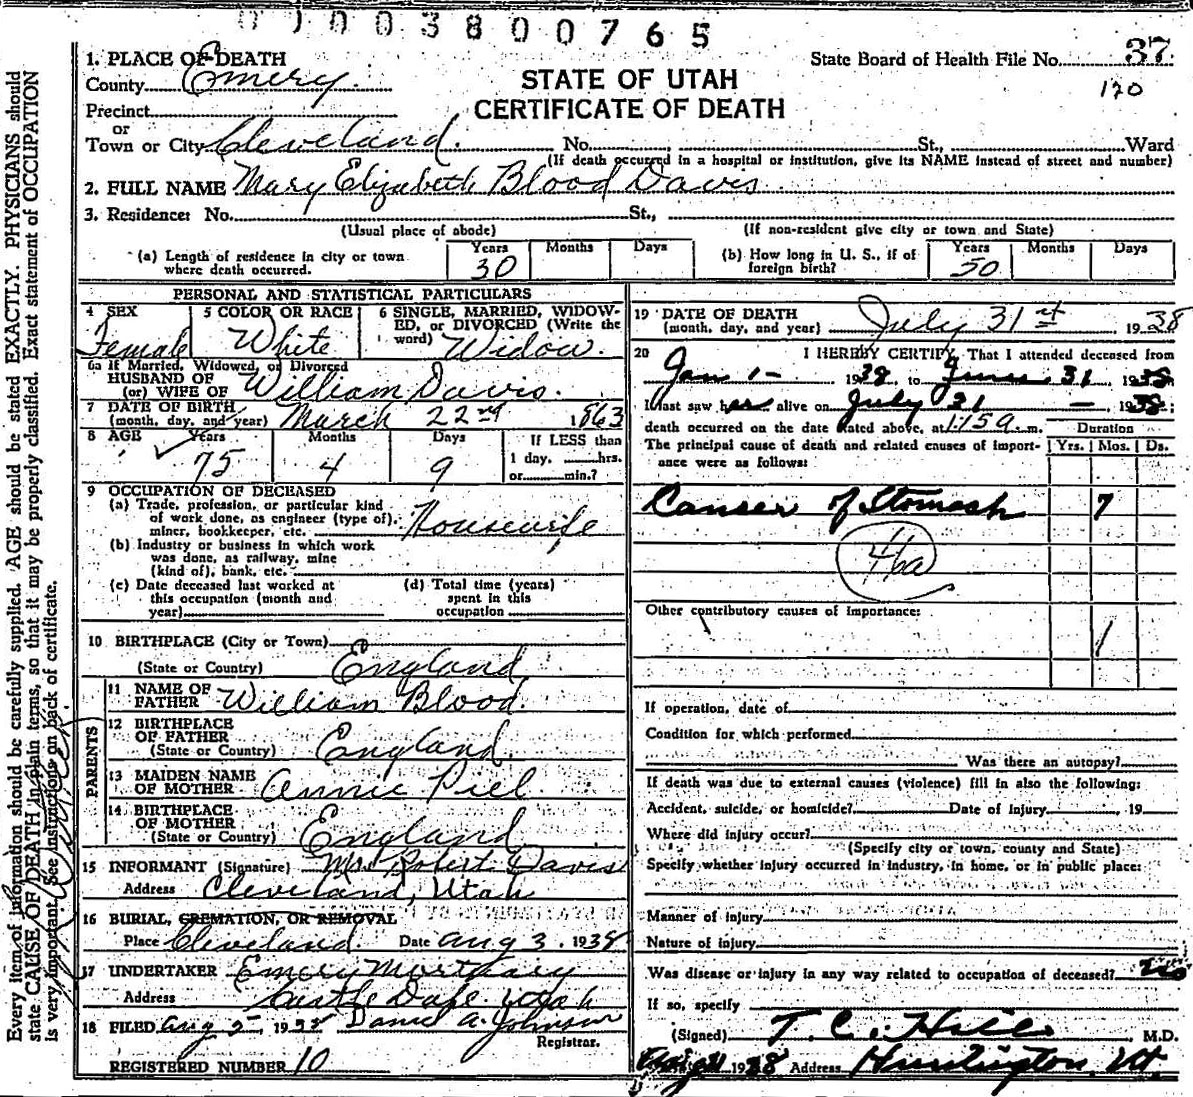 0 1 0 0 3 8 0 0 7 6 5
Every item of information should be carefully supplied. AGE should be stated EXACTLY. PHYSICIANS should
state CAUSE OF DEATH in plain terms, so that it may be properly classified. Exact statement of OCCUPATION
is very important. See instructions on back of certificate.
State Board of Health File No. 37
120
STATE OF UTAH
CERTIFICATE OF DEATH
1. PLACE OF DEATH
County Emery.
Precinct
or
Town or City Cleveland. No. St., Ward
(If death occurred in a hospital or institution, give its NAME instead of street and number)
2. FULL NAME Mary Elizabeth Blood Davis
3. Residence: No. St.,
(Usual place of abode) (If non-resident give city or town and State)
(a) Length of residence in city or town where death occurred. Years 30 Months Days
(b) How long in U. S., if of foreign birth? Years 50 Months Days
PERSONAL AND STATISTICAL PARTICULARS
4 SEX Female
5 COLOR OR RACE White
6 SINGLE, MARRIED, WIDOWED, or DIVORCED (Write the word) Widow.
6a If Married, Widowed, or Divorced
HUSBAND OF
(or) WIFE OF William Davis.
7 DATE OF BIRTH
(month, day, and year) March 22nd 1863
8 AGE Years 75 Months 4 Days 9 If LESS than
1 day, hrs.
or min.?
9 OCCUPATION OF DECEASED
(a) Trade, profession, or particular kind
of work done, as engineer (type of),
miner, bookkeeper, etc. Housewife
(b) Industry or business in which work
was done, as railway, mine
(kind of), bank, etc.
(c) Date deceased last worked at
this occupation (month and
year)
(d) Total time (years)
spent in this
occupation
10 BIRTHPLACE (City or Town)
(State or Country) England
PARENTS
11 NAME OF
FATHER William Blood.
12 BIRTHPLACE
OF FATHER
(State or Country) England.
13 MAIDEN NAME
OF MOTHER Annie Piel
14 BIRTHPLACE
OF MOTHER
(State or Country) England
15 INFORMANT (Signature) Mrs. Robert Davis
Address Cleveland, Utah
16 BURIAL, CREMATION, OR REMOVAL
Place Cleveland. Date Aug 3, 1938
17 UNDERTAKER Emery Mortuary
Address Castle Dale. Utah
18 FILED Aug 2, 1938 Daniel A. Johnson
Registrar.
REGISTERED NUMBER 10
19 DATE OF DEATH
(month, day, and year) July 31st 1938
20 I HEREBY CERTIFY, That I attended deceased from
Jan 1- 1938, to June 31, 1938;
I last saw her alive on July 31 - 1938;
death occurred on the date stated above, at 1:15 a. m.
Duration
The principal cause of death and related causes of importance were as follows: Yrs. Mos. Ds.
Canser of Stomach 7
46a
Other contributory causes of importance:
If operation, date of
Condition for which performed
Was there an autopsy?
If death was due to external causes (violence) fill in also the following:
Accident, suicide, or homicide? Date of injury , 19
Where did injury occur?
(Specify city or town, county and State)
Specify whether injury occurred in industry, in home, or in public place:
Manner of injury
Nature of injury
Was disease or injury in any way related to occupation of deceased? no
If so, specify
(Signed) T. C. Hill, M.D.
1938 Address Huntington, Ut